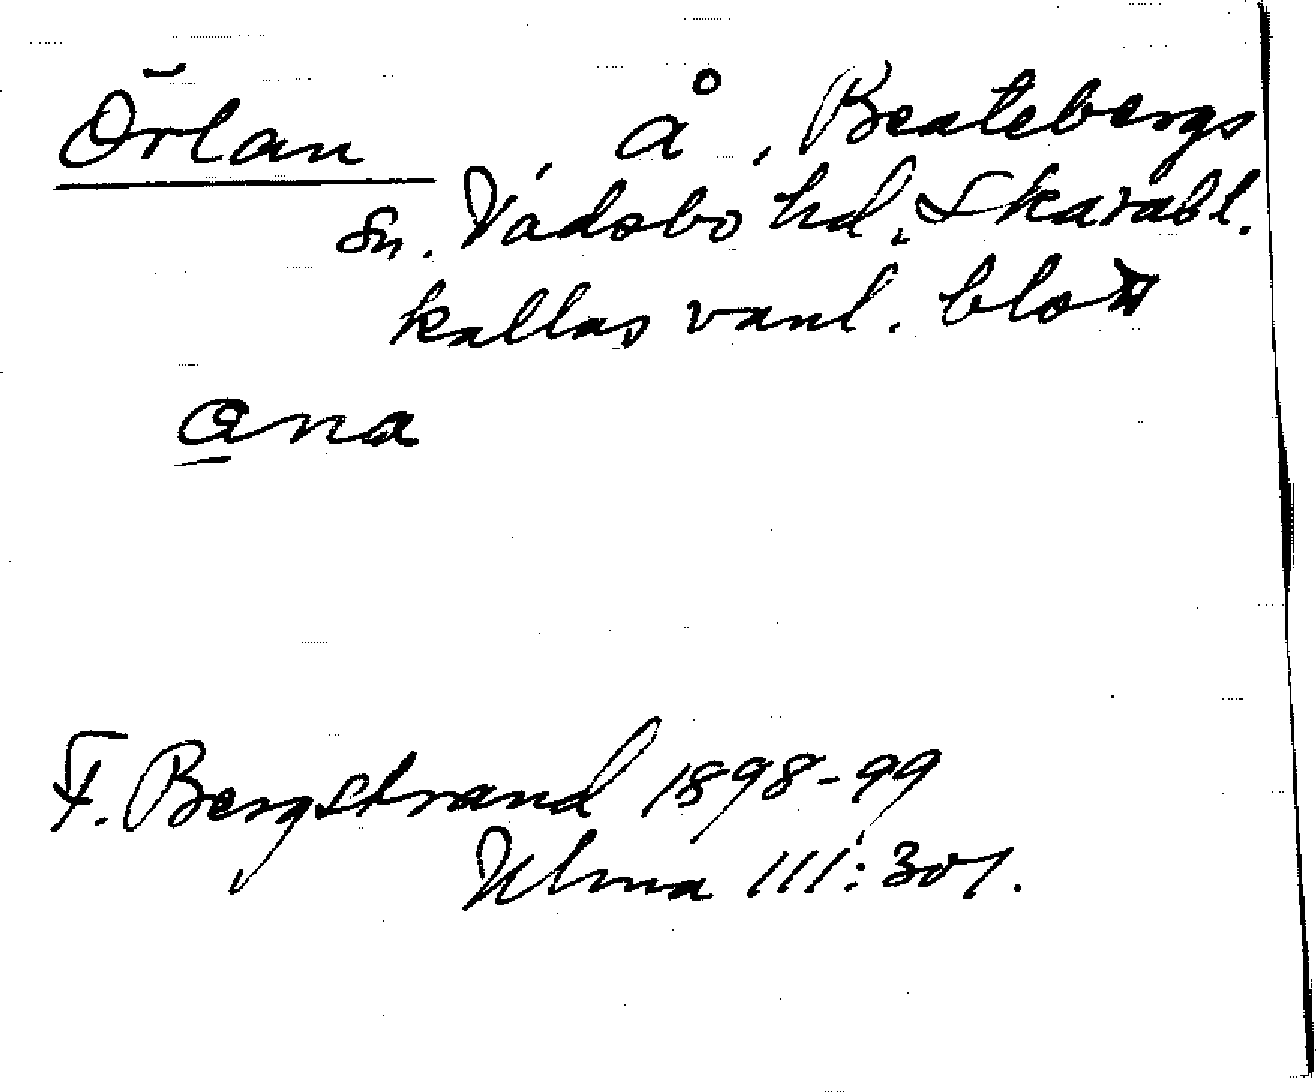 Örlan, å, Beatebergs
sn. Vadsbo hd, Skarabl.
kallas vanl. blott
ana
F. Bergstrand 1898-99
Ulma 111:301.